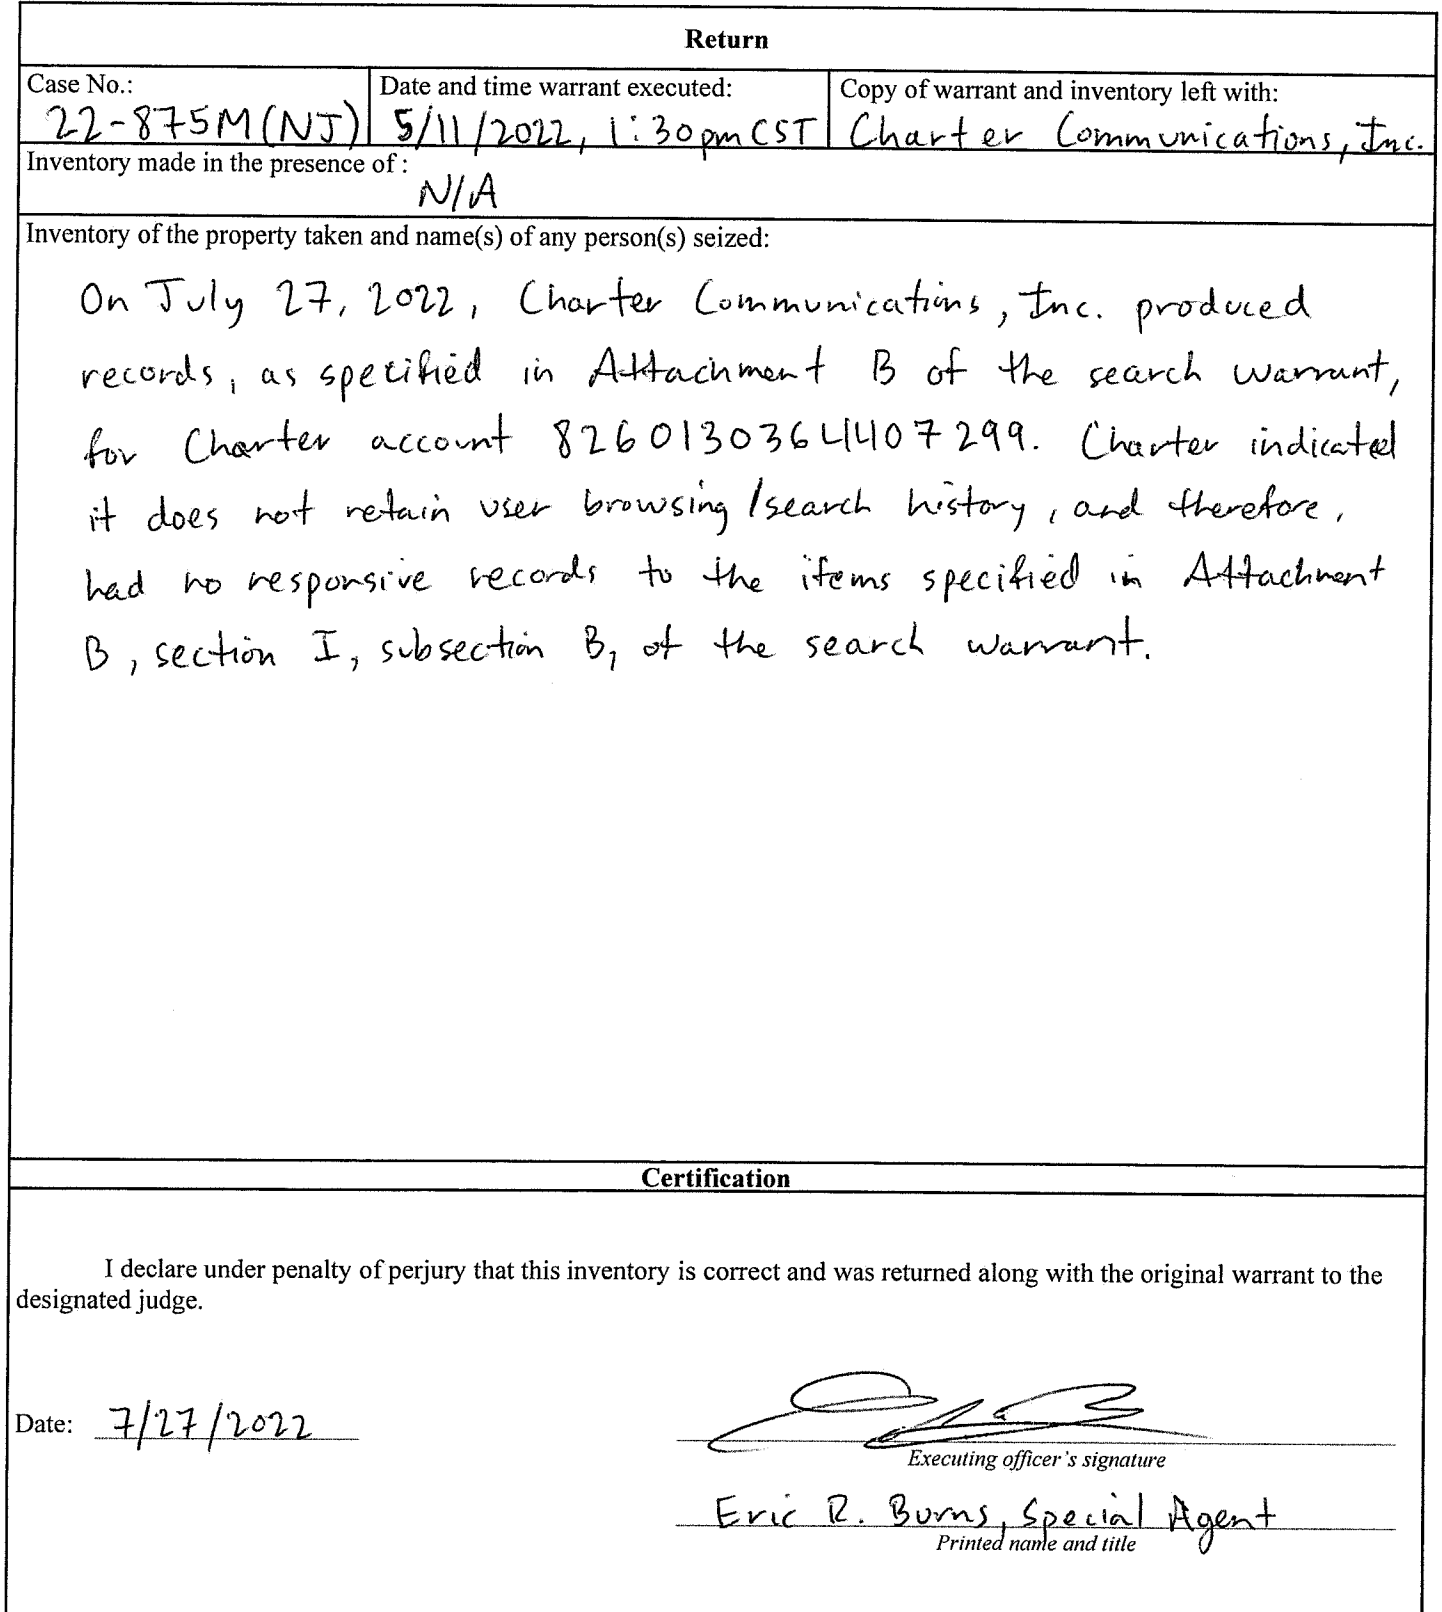 Return
Case No.:
22-875M(NJ)
Date and time warrant executed:
5/11/2022, 1:30pm CST
Copy of warrant and inventory left with:
Charter Communications, Inc.
Inventory made in the presence of :
N/A
Inventory of the property taken and name(s) of any person(s) seized:
On July 27, 2022, Charter Communications, Inc. produced
records, as specified in Attachment B of the search warrant,
for Charter account 8260130364407299. Charter indicated
it does not retain user browsing/search history, and therefore,
had no responsive records to the items specified in Attachment
B, section I, subsection B, of the search warrant.
Certification
I declare under penalty of perjury that this inventory is correct and was returned along with the original warrant to the
designated judge.
Date: 7/27/2022
Executing officer's signature
Eric R. Burns, Special Agent
Printed name and title